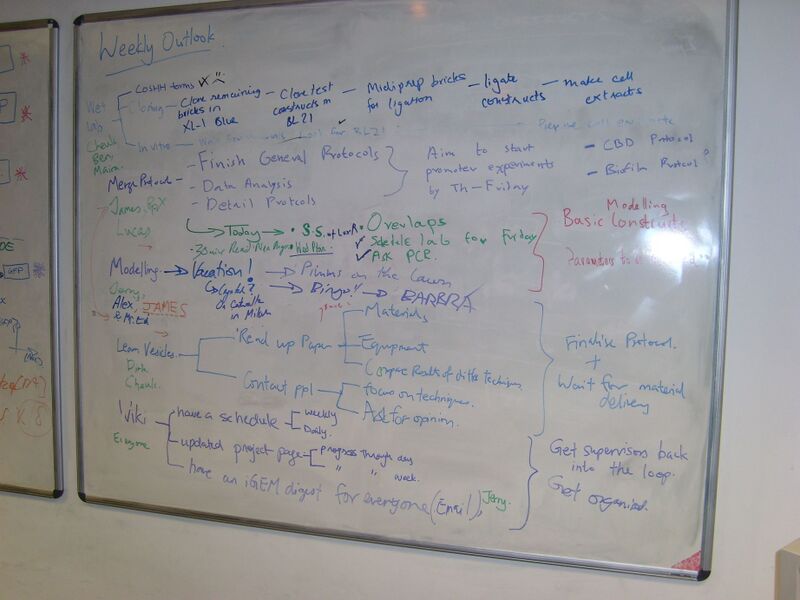 Weekly Outlook.
Wet Lab
Cheuk
Ben
Maira
COSHH forms
Cloning - Clone remaining bricks in XL-1 Blue - Clone test constructs in BL21 - Midiprep bricks for ligation - ligate constructs - make cell extracts
In vitro - for BL21
Merge Protocol - Finish General Protocols
- Data Analysis
- Detail Protcols
Aim to start promoter experiments by Th-Friday
- CBD Protocol
- Biofilm Protocol
James
Lucas
Today
Overlaps
Schedule lab for Friday
Ask PCR.
Modelling
Basic Constructs
Parameters to
Modelling
Vacation!
Pimms on the Lawn
Bingo!!
BARBRA
on Catwalk in Milan
Jerry,
Alex, JAMES
Learn Vesicles
Dirk
Cheuk.
Read up Paper
Materials
Equipment
Compare Results of diff techniques.
Contact ppl
focus on techniques.
Ask for opinion.
Finalise Protocol.
+
Wait for material delivery
Wiki
Everyone
have a schedule
weekly
Daily.
updated project page
progress through day
" " week.
have an iGEM digest for everyone (Email), Jerry.
Get supervisors back into the loop.
Get organised.
GFP